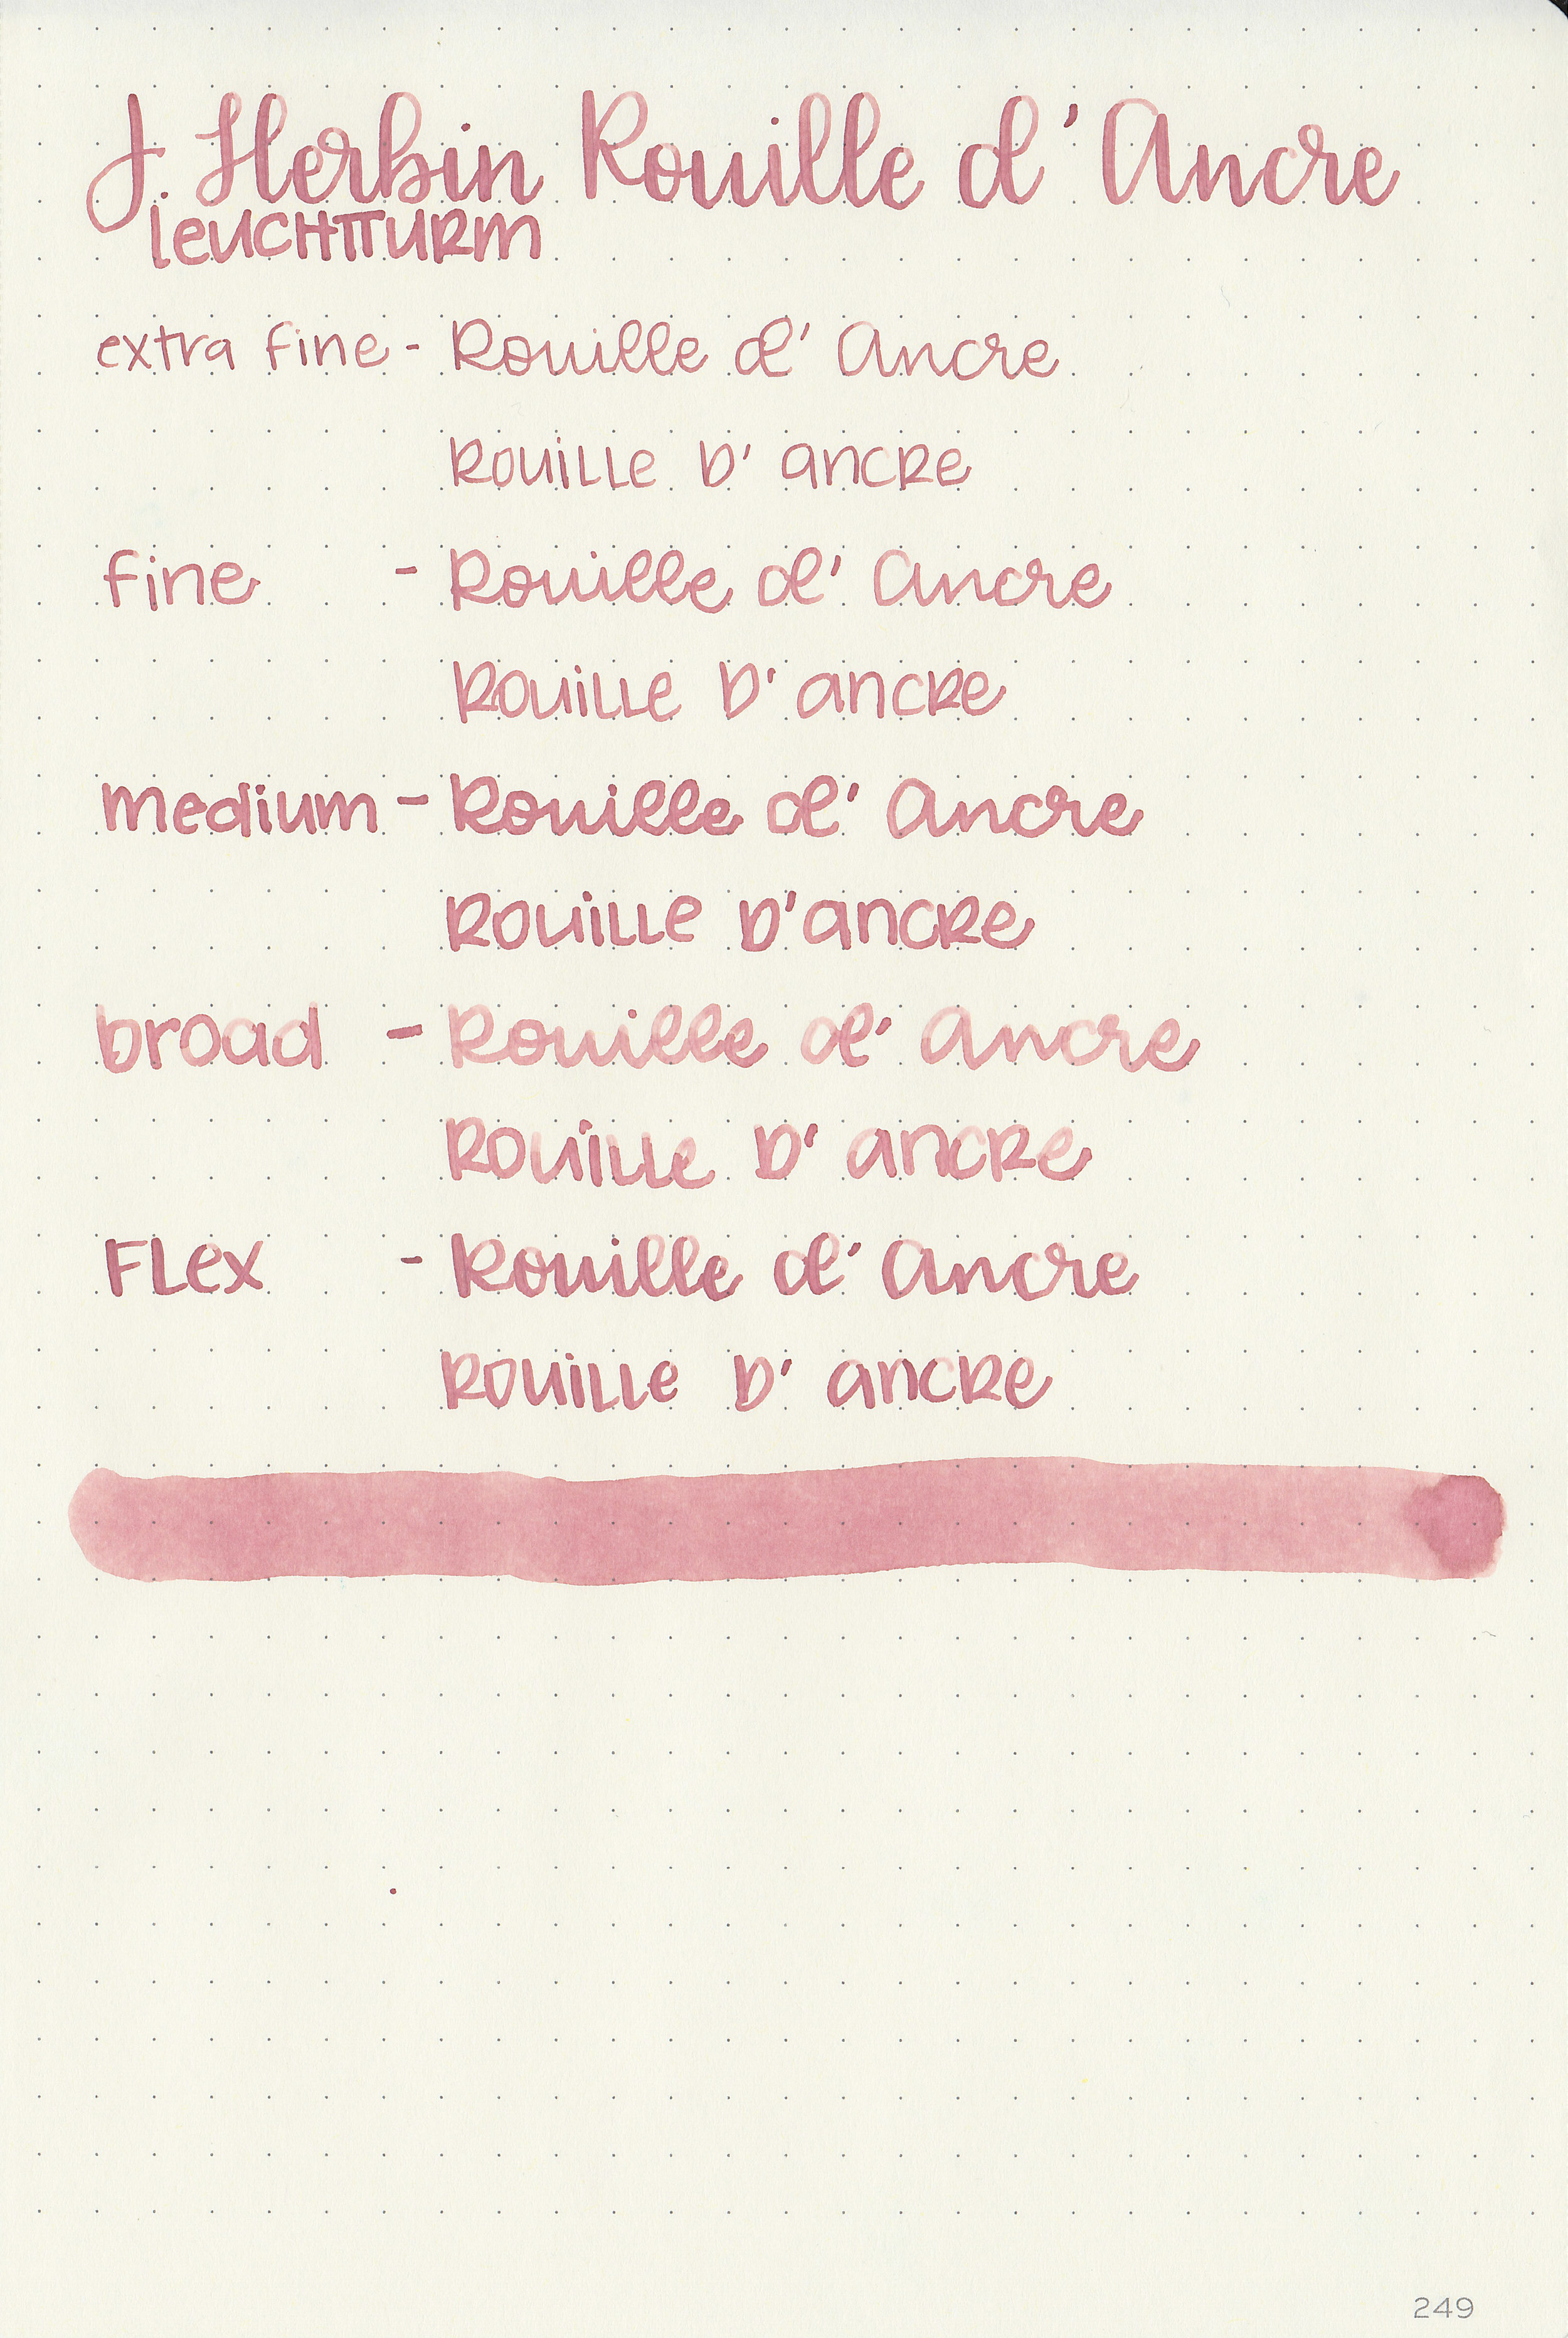 J. Herbin Rouille d'Ancre
Leuchtturm
extra fine - Rouille d' Ancre
Rouille D' ancre
fine - Rouille d' Ancre
Rouille D' ancre
medium - Rouille d' Ancre
Rouille D'ancre
broad - Rouille d' Ancre
Rouille D' ancre
Flex - Rouille d' Ancre
Rouille D' ancre
249